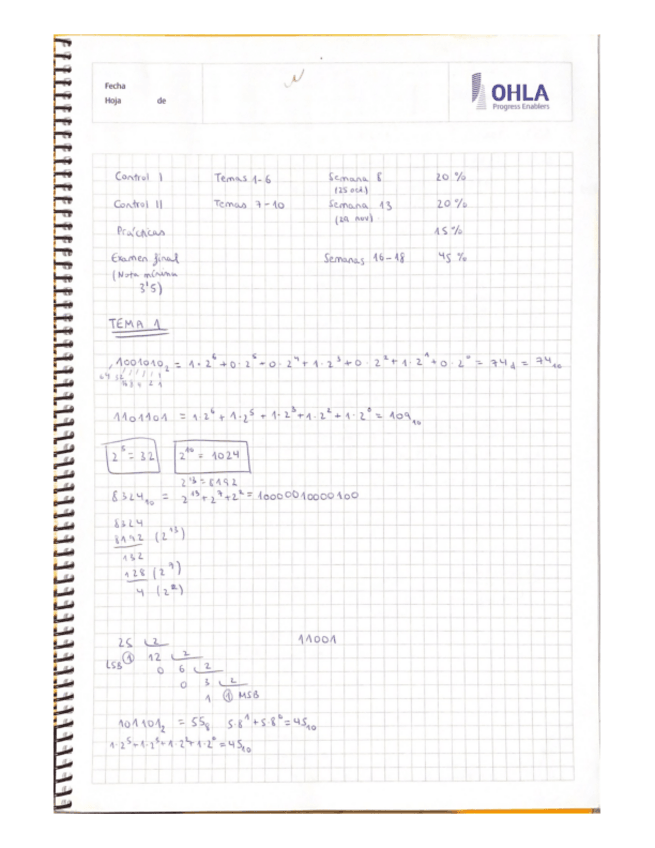 Fecha
Hoja de
OHLA
Progress Enablers
Control I Temas 1-6 Semana 8 20 %
(25 oct)
Control II Temas 7-10 Semana 13 20 %
(29 nov)
Prácticas 15 %
Examen final Semanas 16-18 45 %
(Nota mínima
3'5)
TEMA 1
1001010₂ = 1·2⁶ + 0·2⁵ + 0·2⁴ + 1·2³ + 0·2² + 1·2¹ + 0·2⁰ = 74 = 74₁₀
64 32 16 8 4 2 1
1101101 = 1·2⁶ + 1·2⁵ + 1·2³ + 1·2² + 1·2⁰ = 109₁₀
2⁵ = 32 2¹⁰ = 1024
2¹³ = 8192
8324₁₀ = 2¹³ + 2⁷ + 2² = 10000010000100
8324
8192 (2¹³)
132
128 (2⁷)
4 (2²)
25 2 11001
LSB 1 12 2
0 6 2
0 3 2
1 1 MSB
101101₂ = 55₈ 5·8¹ + 5·8⁰ = 45₁₀
1·2⁵ + 1·2³ + 1·2² + 1·2⁰ = 45₁₀